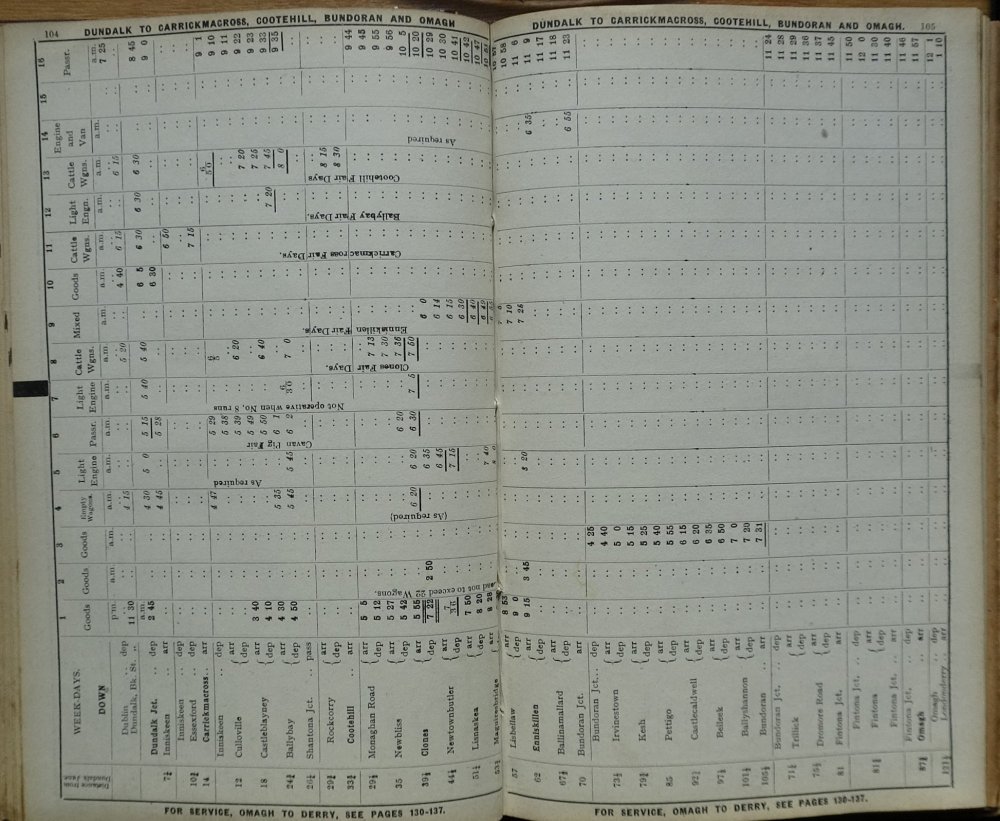 104 DUNDALK TO CARRICKMACROSS, COOTEHILL, BUNDORAN AND OMAGH
DUNDALK TO CARRICKMACROSS, COOTEHILL, BUNDORAN AND OMAGH. 105
WEEK-DAYS.
DOWN
Distance from Dundalk Junc.
1 Goods p.m.
2 Goods a.m.
3 Goods a.m.
4 Empty Wagons. a.m.
5 Light Engine a.m.
6 Passr. a.m.
7 Light Engine a.m.
8 Cattle Wgns. a.m.
9 Mixed a.m.
10 Goods a.m.
11 Cattle Wgns. a.m.
12 Light Engn. a.m.
13 Cattle Wgns. a.m.
14 Engine and Van a.m.
15
16 Passr. a.m.
Dublin .. dep 4 15 5 20 4 40 6 15 6 15 7 25
Dundalk, Bk. St. „ 11 30 8 45
Dundalk Jct. dep a.m. 2 45 4 30 5 0 5 15 5 40 5 40 6 5 6 30 6 30 6 30 9 0
7½ Inniskeen arr 4 45 5 28 6 30 6 50
Inniskeen dep
10¾ Essexford arr
14 Carrickmacross.. arr 7 15
Inniskeen .. dep 4 47 5 29 9 1
12 Culloville { arr 5 38 9 10
dep 3 40 5 39 6 20 7 20 9 11
18 Castleblayney { arr 4 10 5 49 7 25 9 22
dep 4 30 5 35 5 50 6 40 7 45 9 23
24¾ Ballybay { arr 4 50 5 45 5 45 6 1 7 20 8 0 9 33
dep 6 2 6 30 7 0 9 35
26¼ Shantona Jct. pass
29¾ Rockcorry { arr 8 15
dep 8 30
33¾ Cootehill .. arr
29¼ Monaghan Road { arr 5 5 9 44
dep 5 12 7 13 9 45
35 Newbliss { arr 5 27 7 30 9 55
dep 5 42 6 20 7 36 9 56
39½ Clones { arr 5 55 6 20 6 20 6 30 7 5 7 50 10 5
dep 7 22 2 50 6 35 6 0 10 20
44¾ Newtownbutler { arr 6 45 6 14 10 29
dep 7 15 6 15 10 30
51¼ Lisnaskea { arr 7 50 6 30 10 41
dep 8 20 6 40 10 42
53¾ Maguiresbridge { arr 8 28 7 40 6 49 10 47
57 Lisbellaw { arr 8 53 10 58
dep 9 0 7 10 11 6
62 Enniskillen { arr 9 15 3 45 8 20 7 25 11 9
dep 6 35 11 17
67¾ Ballinamallard { arr 11 17
dep 11 18
70 Bundoran Jct. arr 6 55 11 23
Bundoran Jct... dep 4 25
73¾ Irvinestown { arr 4 40
dep 5 0
79¾ Kesh { arr 5 15
dep 5 25
85 Pettigo { arr 5 40
dep 5 55
92¾ Castlecaldwell { arr 6 15
dep 6 20
97¼ Belleek { arr 6 35
dep 6 50
101¼ Ballyshannon { arr 7 0
dep 7 20
105½ Bundoran .. arr 7 31
Bundoran Jct. .. dep 11 24
71¼ Trillick { arr 11 28
dep 11 29
75¼ Dromore Road { arr 11 36
dep 11 37
81 Fintona Jct. arr 11 45
Fintona Jct. .. dep 11 50
81¾ Fintona { arr 12 0
dep 11 30
Fintona Jct. .. arr 11 40
Fintona Jct. .. dep 11 46
87¼ Omagh .. arr 11 57
Omagh .. dep 12 1
121¼ Londonderry .. arr 1 10
and not to exceed 22 Wagons.
(As required)
As required
Cavan Pig Fair
Not operative when No. 8 runs
Clones Fair Days.
Enniskillen Fair Days.
Carrickmacross Fair Days.
Ballybay Fair Days.
Cootehill Fair Days
As required
FOR SERVICE, OMAGH TO DERRY, SEE PAGES 130-137.
FOR SERVICE, OMAGH TO DERRY, SEE PAGES 130-137.